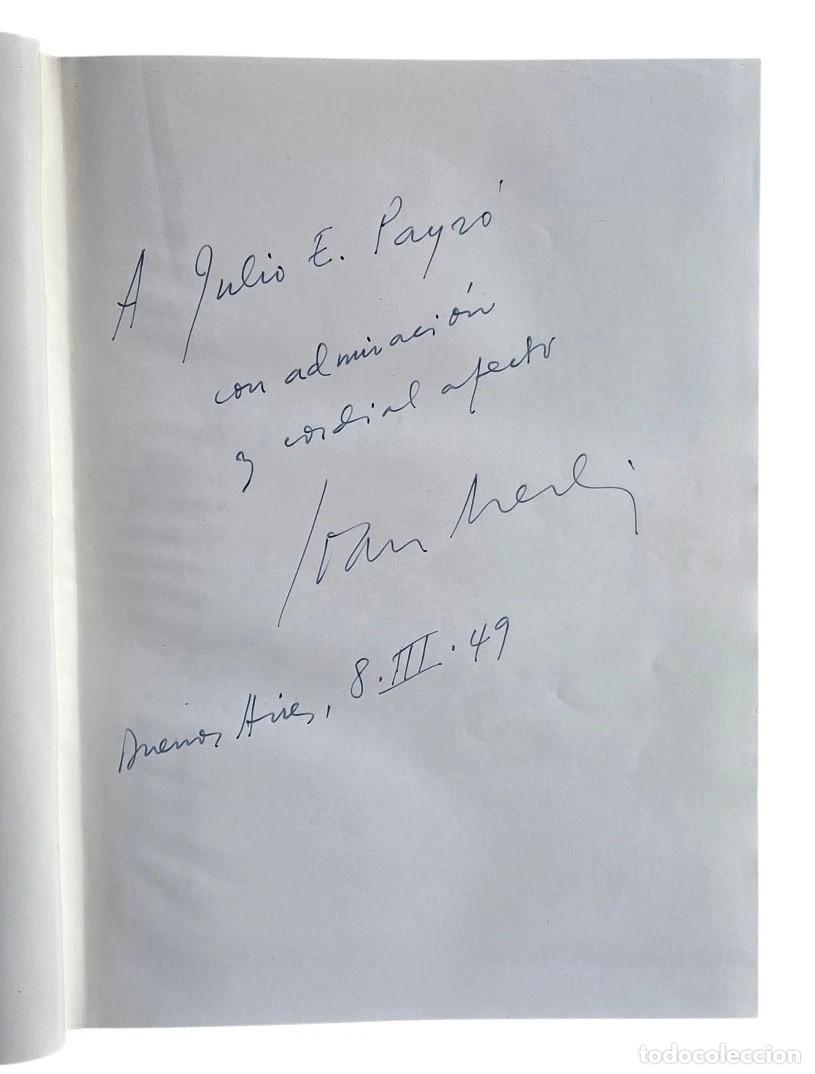 A Julio E. Payró
con admiración
y cordial afecto
Buenos Aires, 8.III.49
todocoleccion